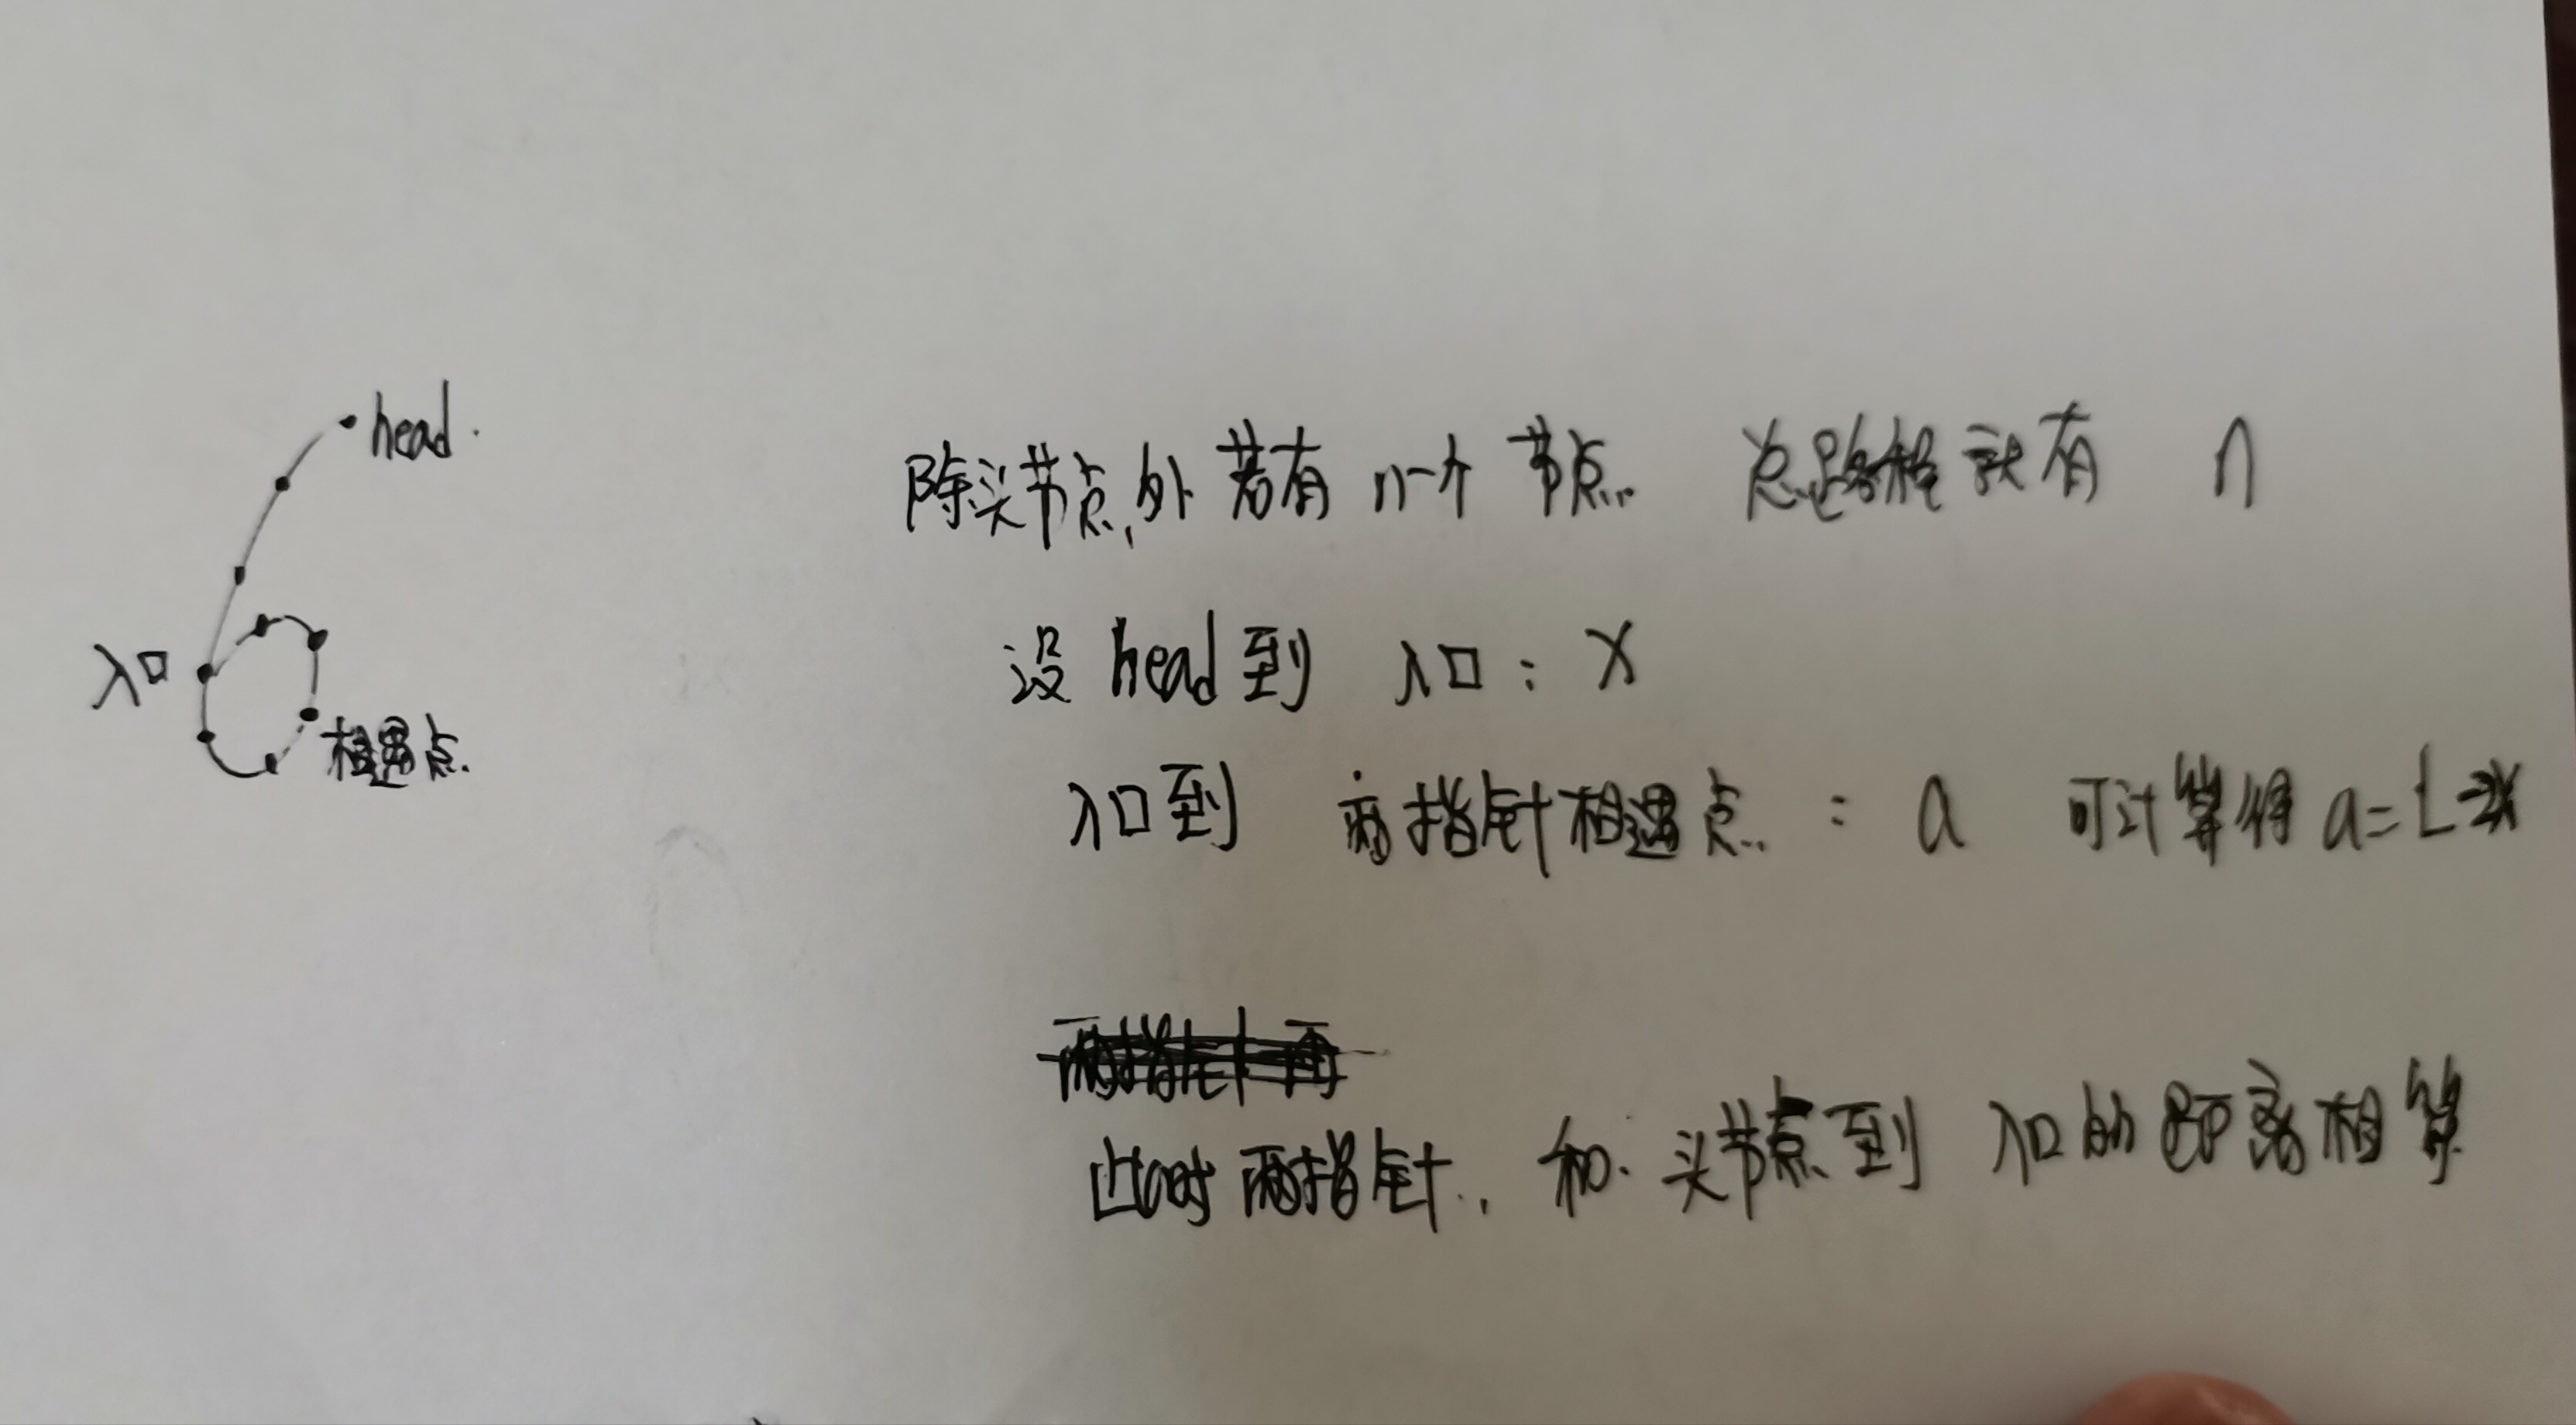 head.
入口
相遇点.
除头节点,外 若有 n个 节点. 总路程就有 n
设 head到 入口: X
入口到 两指针相遇点. : a 可计算得 a=L
此时 两指针., 和. 头节点到 入口的距离相等